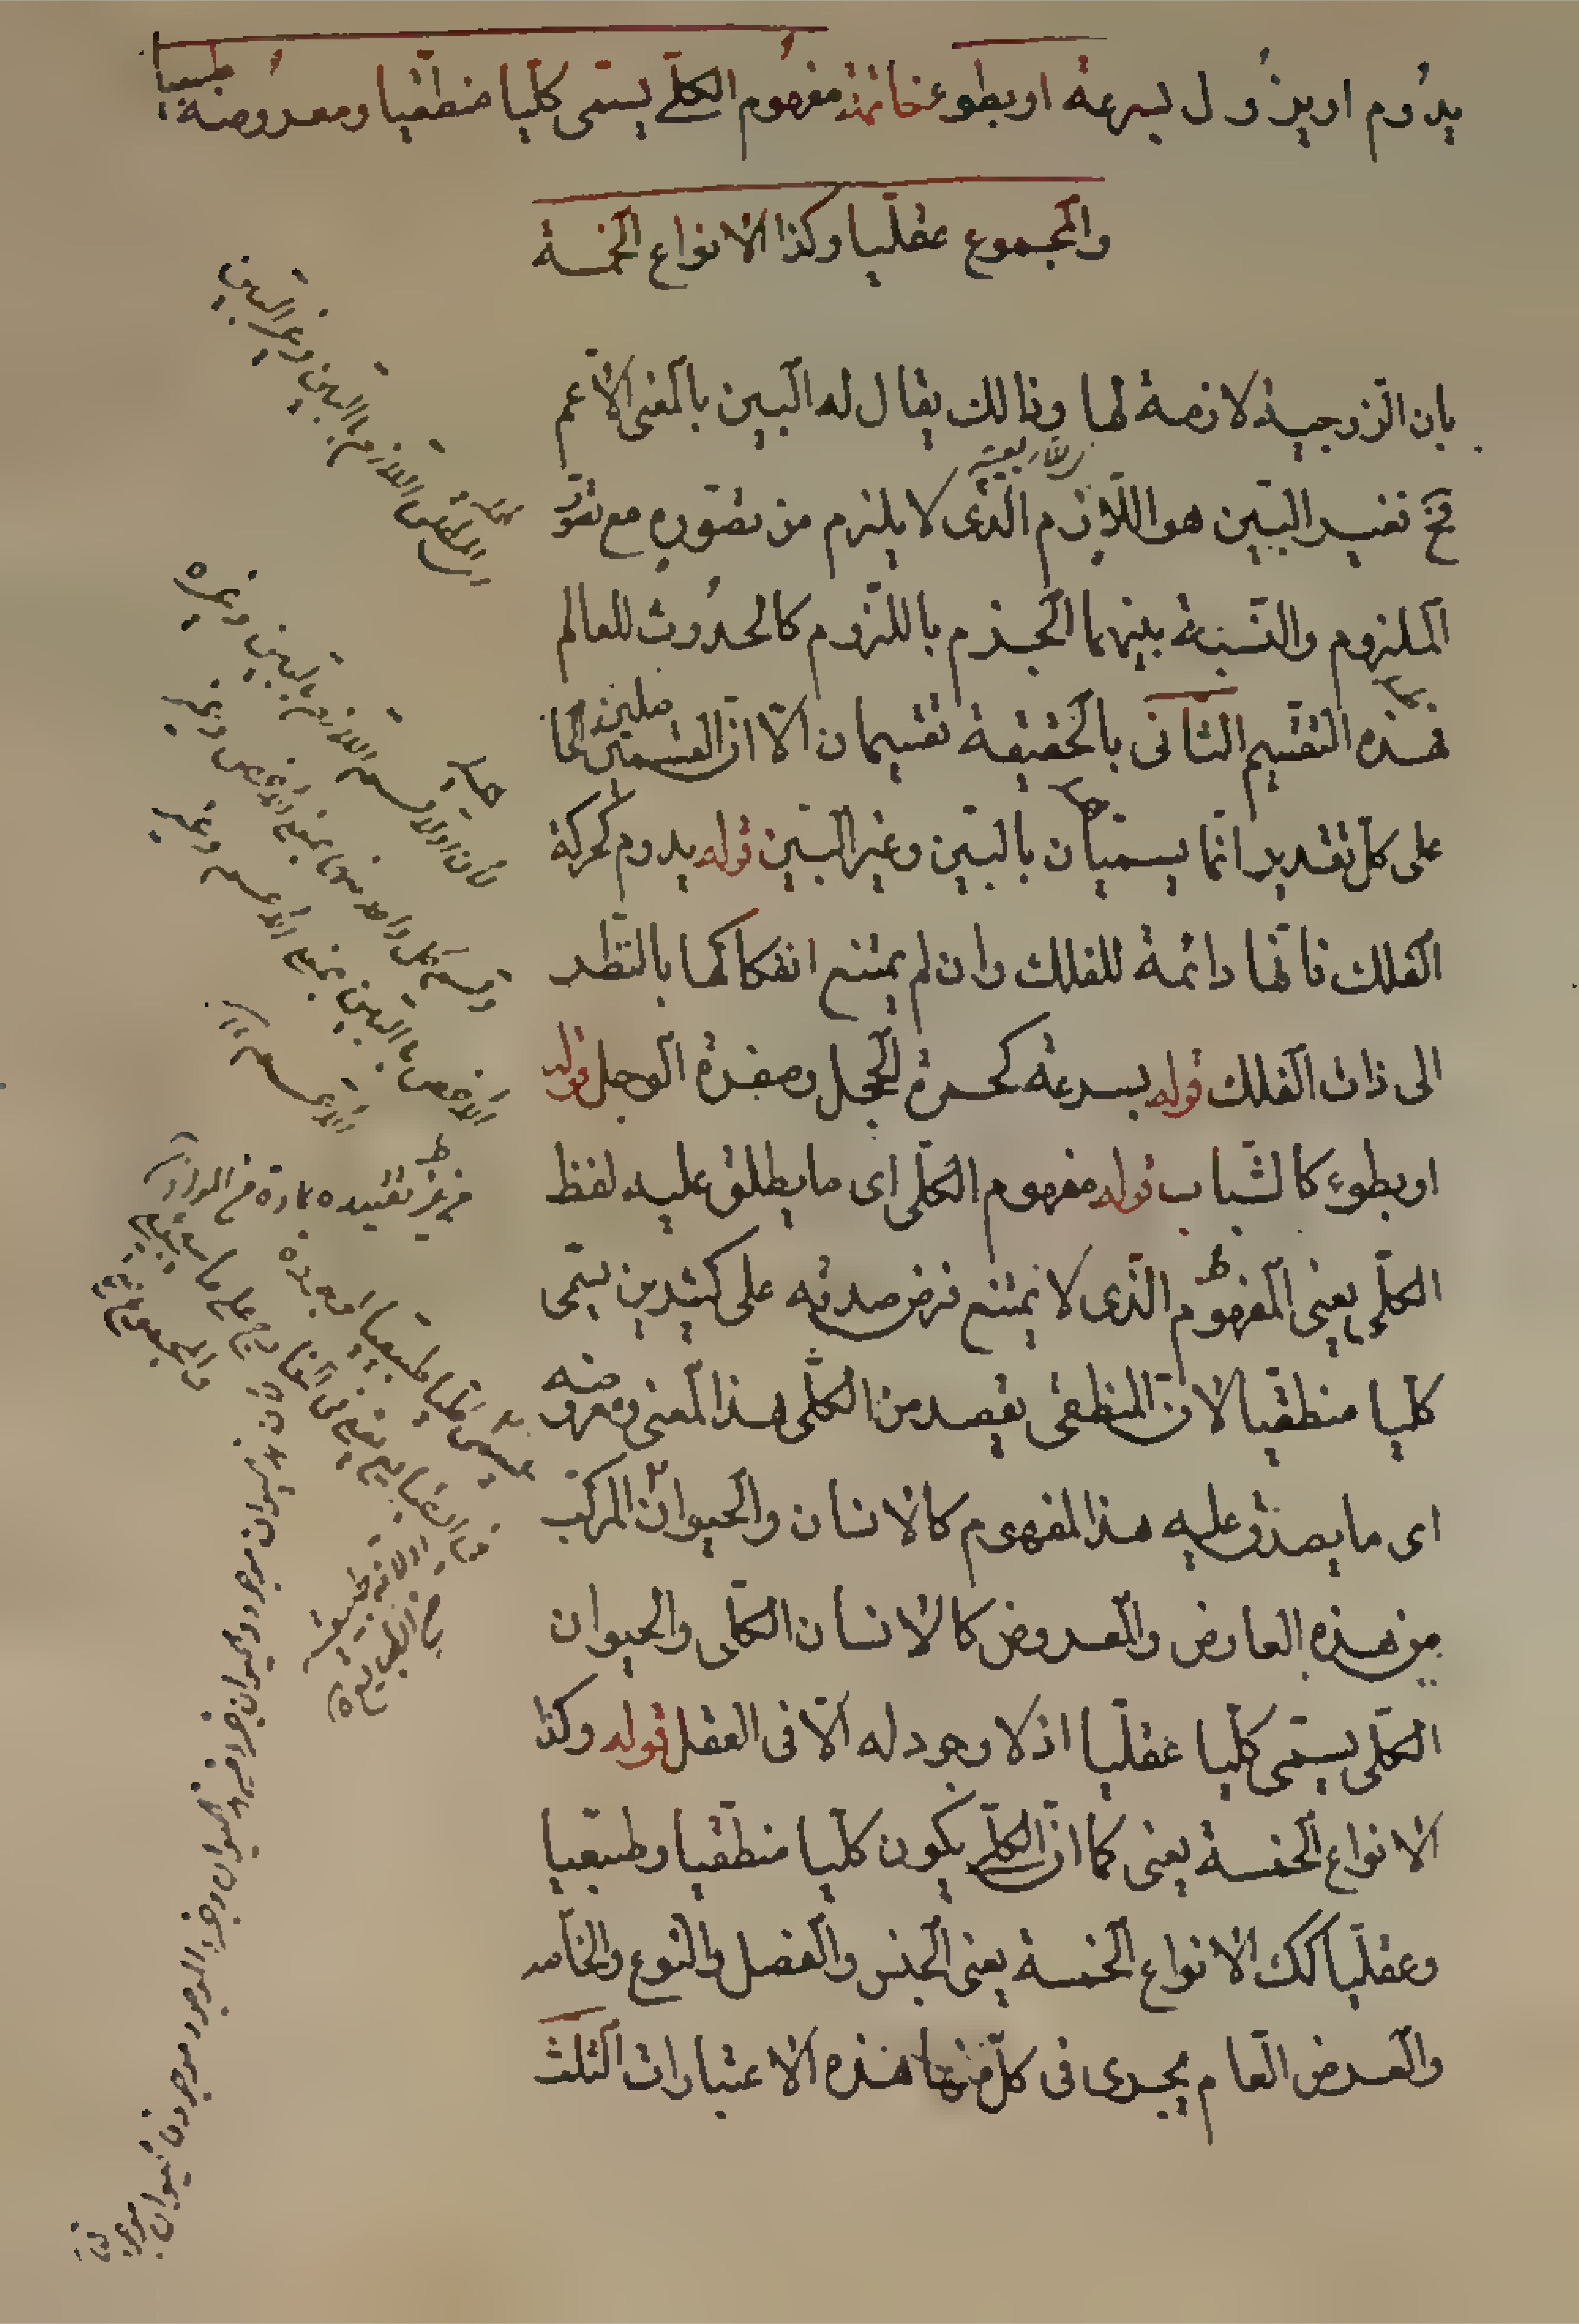 يدُوم او يزُول بسرعة او بطوء خاتمة مفهوم الكلّى يسمّى كلّيا منطقيّا ومعروضه طبيعيا
والمجموع عقليّا وكذا الانواع الخمسة
بان الزوجية لازمة لها وذالك يقال له البيّن بالمعنى الاعم
فح تفسير البيّن هو اللّازم الّذى لا يلزم من تصوّره مع تصوّر
الملزوم والنّسبة بينهما الجزم باللزوم كالحدُوث للعالم
فهذه التقسيم الثانى بالحقيقة تقسيمان الّا ان القسمين الحاصلين
على كلّ تقدير انّما يسمّيان بالبيّن وغير البيّن قوله يدوم كحركة
الفلك فانّها دائمة للفلك وان لم يمتنع انفكاكها بالنّظر
الى ذات الفلك قوله بسرعة كحمرة الخجل وصفرة الوجل قوله
او بطوء كالشّباب قوله مفهوم الكلّى اى ما يطلق عليه لفظ
الكلّى يعنى المفهوم الّذى لا يمتنع فرض صدقه على كثيرين يسمّى
كلّيا منطقيّا لانّ المنطقى يقصد من الكلّى هذا المعنى ومعروضه
اى ما يصدق عليه هذا المفهوم كالانسان والحيوان المركّب
من هذه العارض والمعروض كالانسان الكلّى والحيوان
الكلّى يسمّى كلّيا عقليّا اذ لا وجود له الّا فى العقل قوله وكذا
الانواع الخمسة يعنى كما انّ الكلّى يكون كلّيا منطقيّا وطبيعيا
وعقليّا كك الانواع الخمسة يعنى الجنس والفصل والنوع والخاصه
والعرض العام يجرى فى كلّ منها هذه الاعتبارات الثلث
اللازم بالبين وغير البين
لان اولا قسم اللازم بالبين وغيره
وقسم كل واحد منهما بمعنى الاخص وغير
الاخص بالبين بمعنى الاعم وغير
الاعم
من غير تقييده بمادة من المواد
يسمى كليا طبيعيا
لان الحيوان موجود والحيوان جزء الحيوان وجزء الموجود موجود فالحيوان موجود